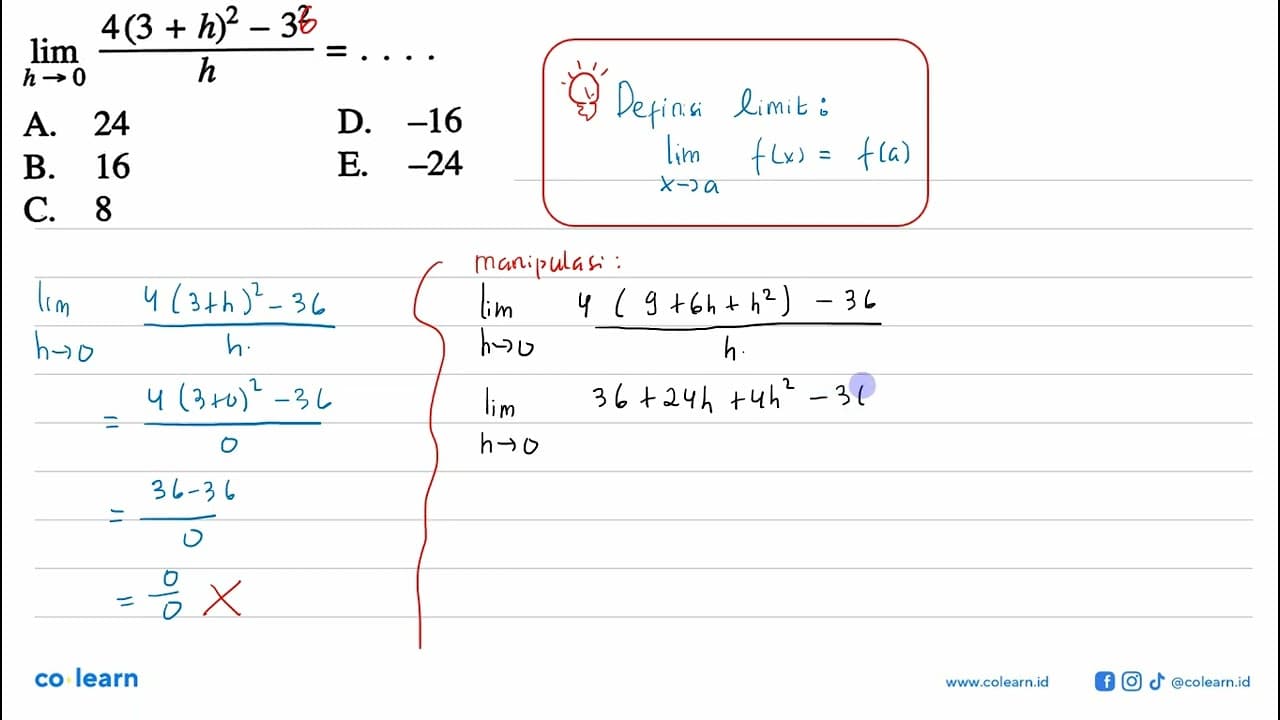 lim h→0 4(3 + h)² − 36 / h = . . . .
A. 24
B. 16
C. 8
D. –16
E. –24
Definsi limit :
lim x→a f(x) = f(a)
lim h→0 4(3+h)² - 36 / h.
= 4(3+0)² - 36 / 0
= 36-36 / 0
= 0/0 X
manipulasi :
lim h→0 4(9+6h+h²) - 36 / h.
lim h→0 36+24h+4h² - 36
co learn
www.colearn.id
@colearn.id